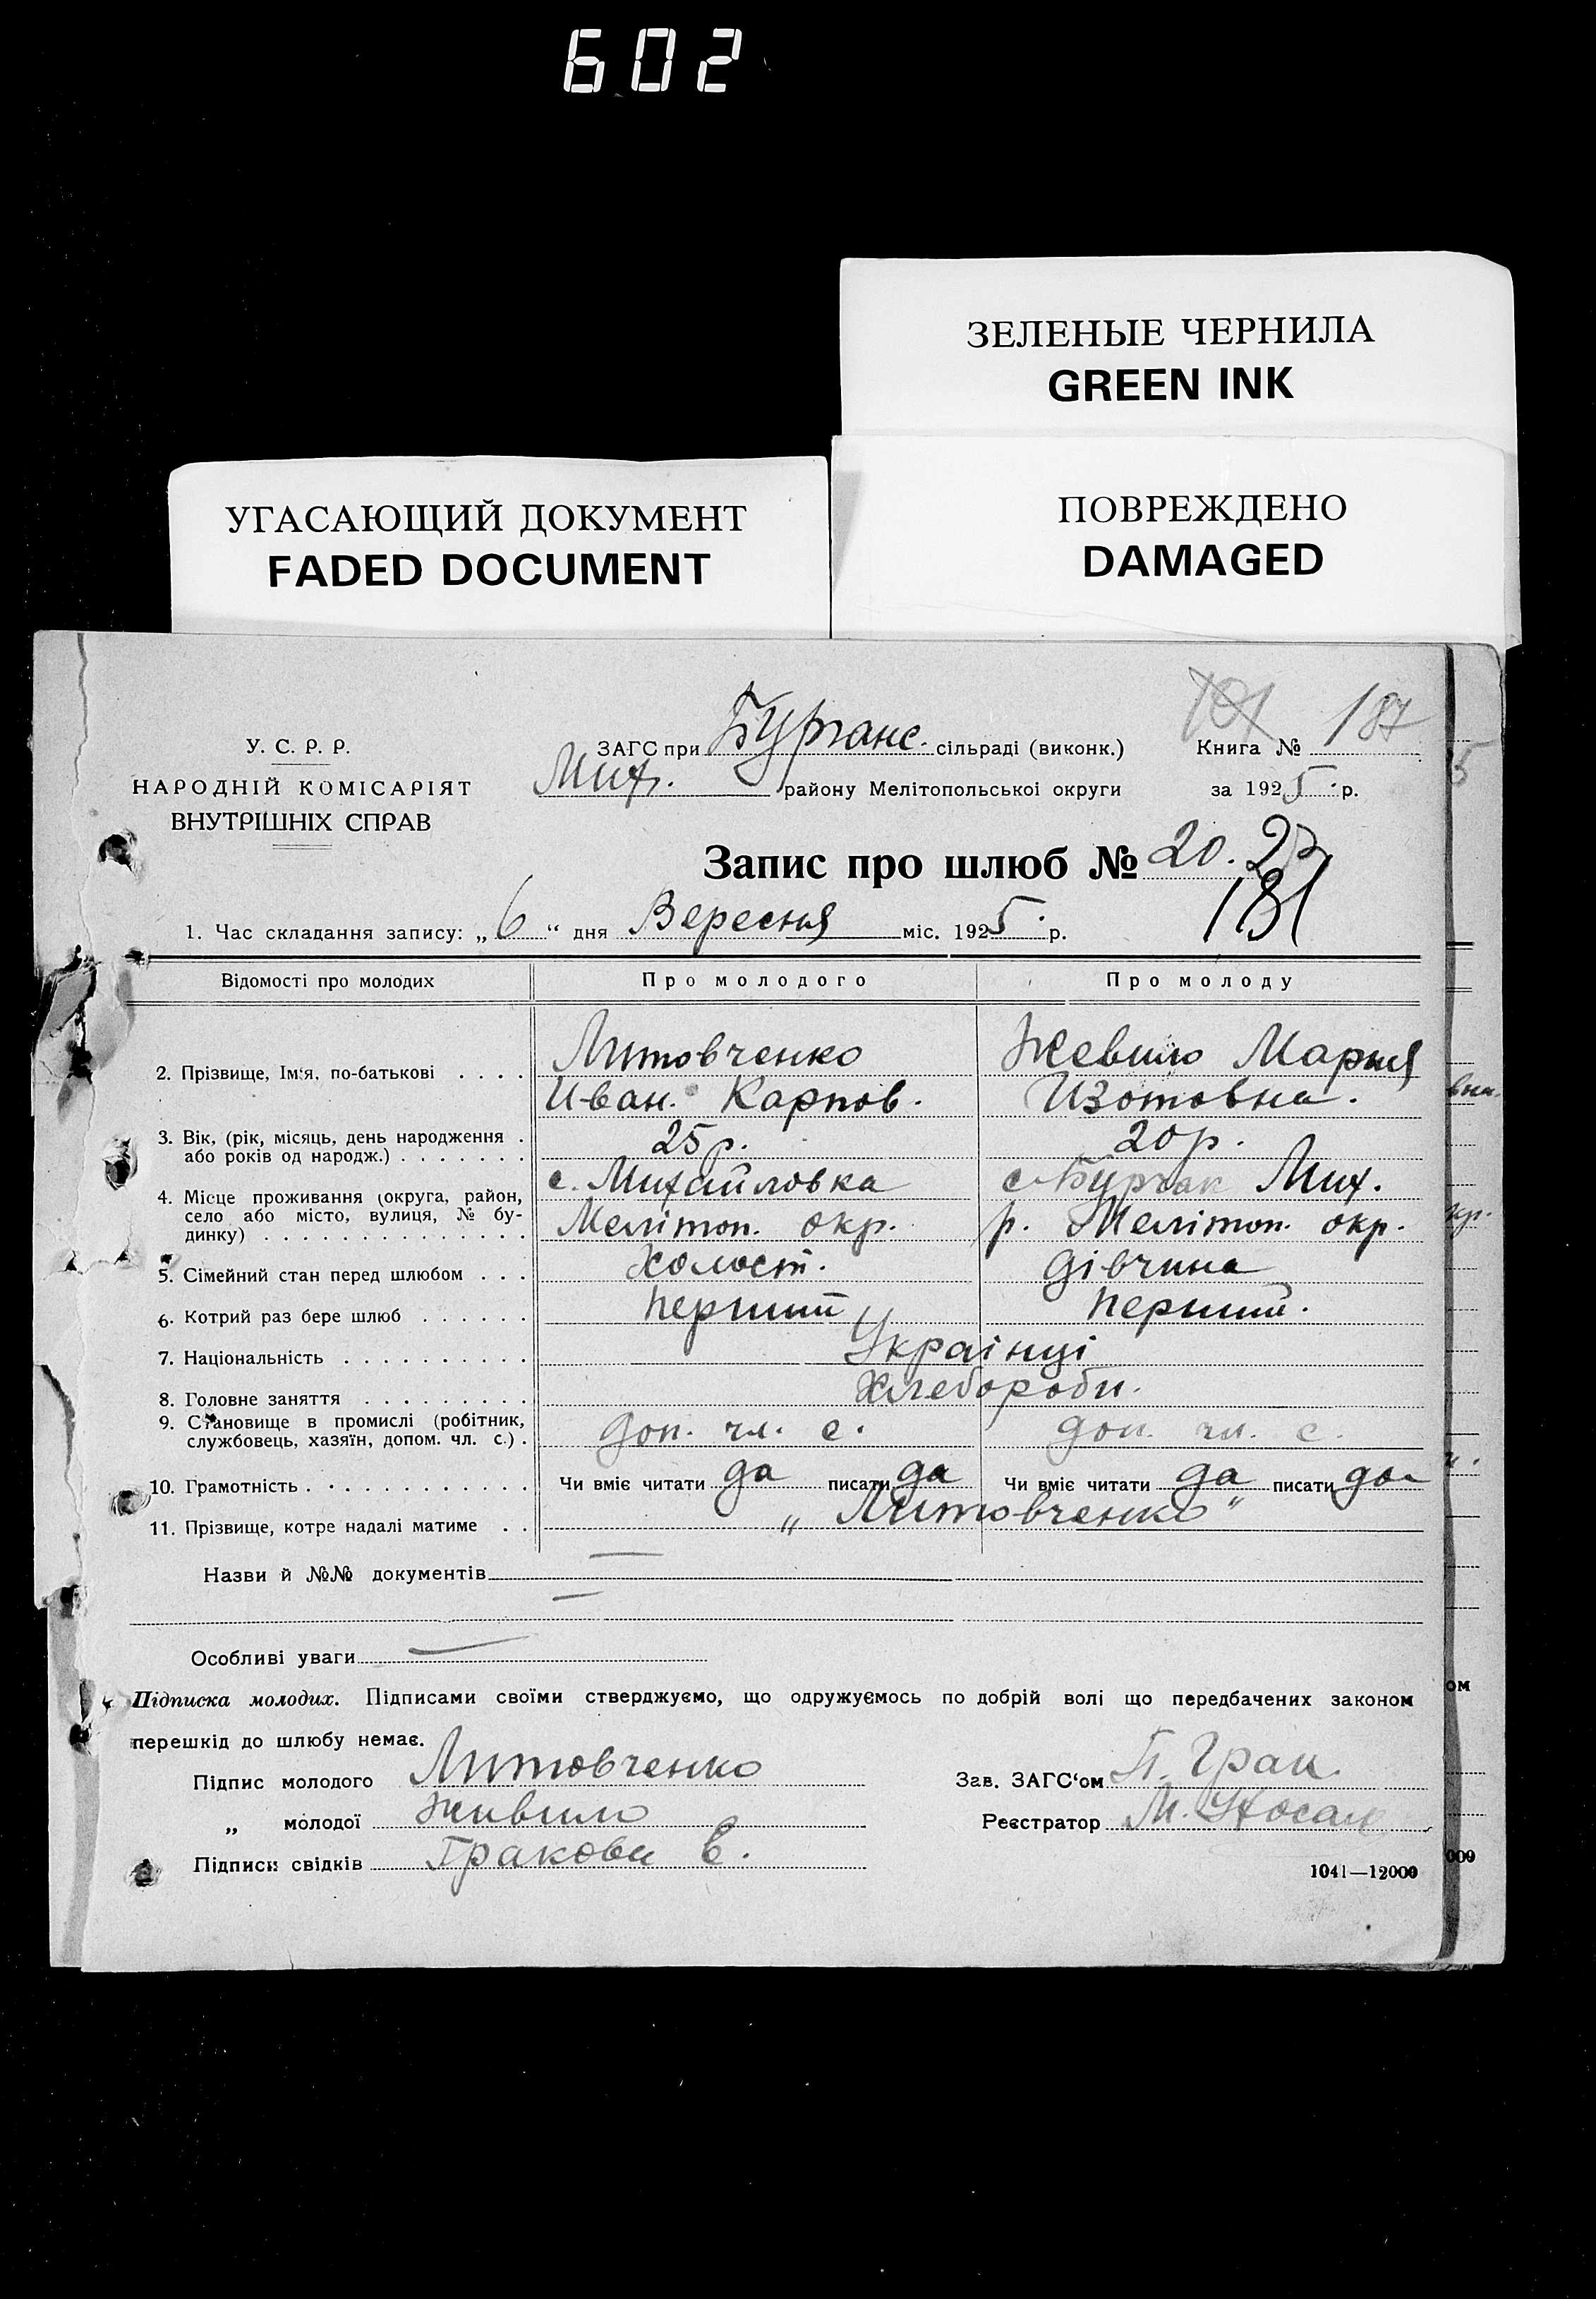 602
ЗЕЛЕНЫЕ ЧЕРНИЛА
GREEN INK
УГАСАЮЩИЙ ДОКУМЕНТ
FADED DOCUMENT
ПОВРЕЖДЕНО
DAMAGED
У. С. Р. Р.
НАРОДНІЙ КОМІСАРІЯТ
ВНУТРІШНІХ СПРАВ
ЗАГС при сільраді (виконк.)
Мих. району Мелітопольської округи
101 187
Книга №
за 1925 р.
Запис про шлюб № 20. 23
181
1. Час складання запису: „6“ дня Вересня міс. 1925 р.
Відомості про молодих Про молодого Про молоду
2. Прізвище, Ім'я, по-батькові . . . . Литовченко Жевило Мария
Иван. Карпов. Изотовна.
3. Вік, (рік, місяць, день народження . 25 р. 20 р.
або років од народж.) . . . . . . .
4. Місце проживання (округа, район, с. Михайловка с. Бурчак Мих.
село або місто, вулиця, № бу- Мелітоп. окр. р. Мелітоп. окр.
динку) . . . . . . . . . . . . . .
5. Сімейний стан перед шлюбом . . . Холост. дівчина
6. Котрий раз бере шлюб . . . . . . перший перший.
7. Національність . . . . . . . . . . Украінці
8. Головне заняття . . . . . . . . . Хлебороби.
9. Становище в промислі (робітник, доп. чл. с. доп. чл. с.
службовець, хазяїн, допом. чл. с.) .
10. Грамотність . . . . . . . . . . . Чи вміє читати да писати да Чи вміє читати да писати да
11. Прізвище, котре надалі матиме . . „ Литовченко “
Назви й №№ документів —
—
Особливі уваги —
Підписка молодих. Підписами своїми стверджуємо, що одружуємось по добрій волі що передбачених законом
перешкід до шлюбу немає.
Підпис молодого Литовченко
„ молодої Живило
Підписи свідків в.
Зав. ЗАГС‘ом П. Грак
Реєстратор М.
1041—12000
5
вна.
кр.
ом
009